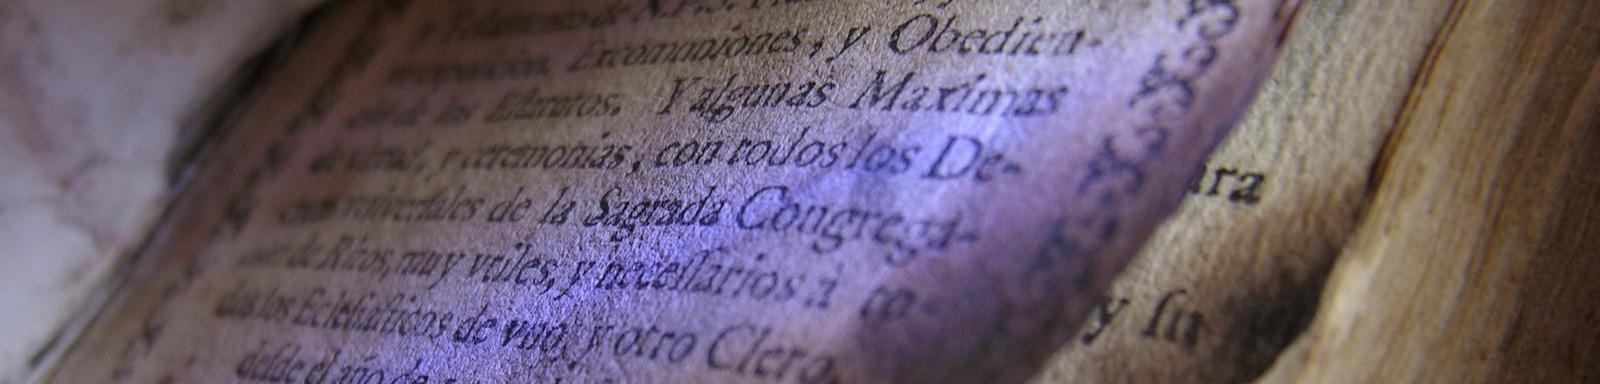 y Testamento de N.P.S.
Excomuniones, y Obedien-
de los Yalgunas Maximas
y ceremonias, con todos los De-
vniversales de la Sagrada Congrega-
de Ritos, muy vtiles, y necessarios à to-
dos los Eclesiasticos de vno, y otro Clero,
desde el año de
ara
y su